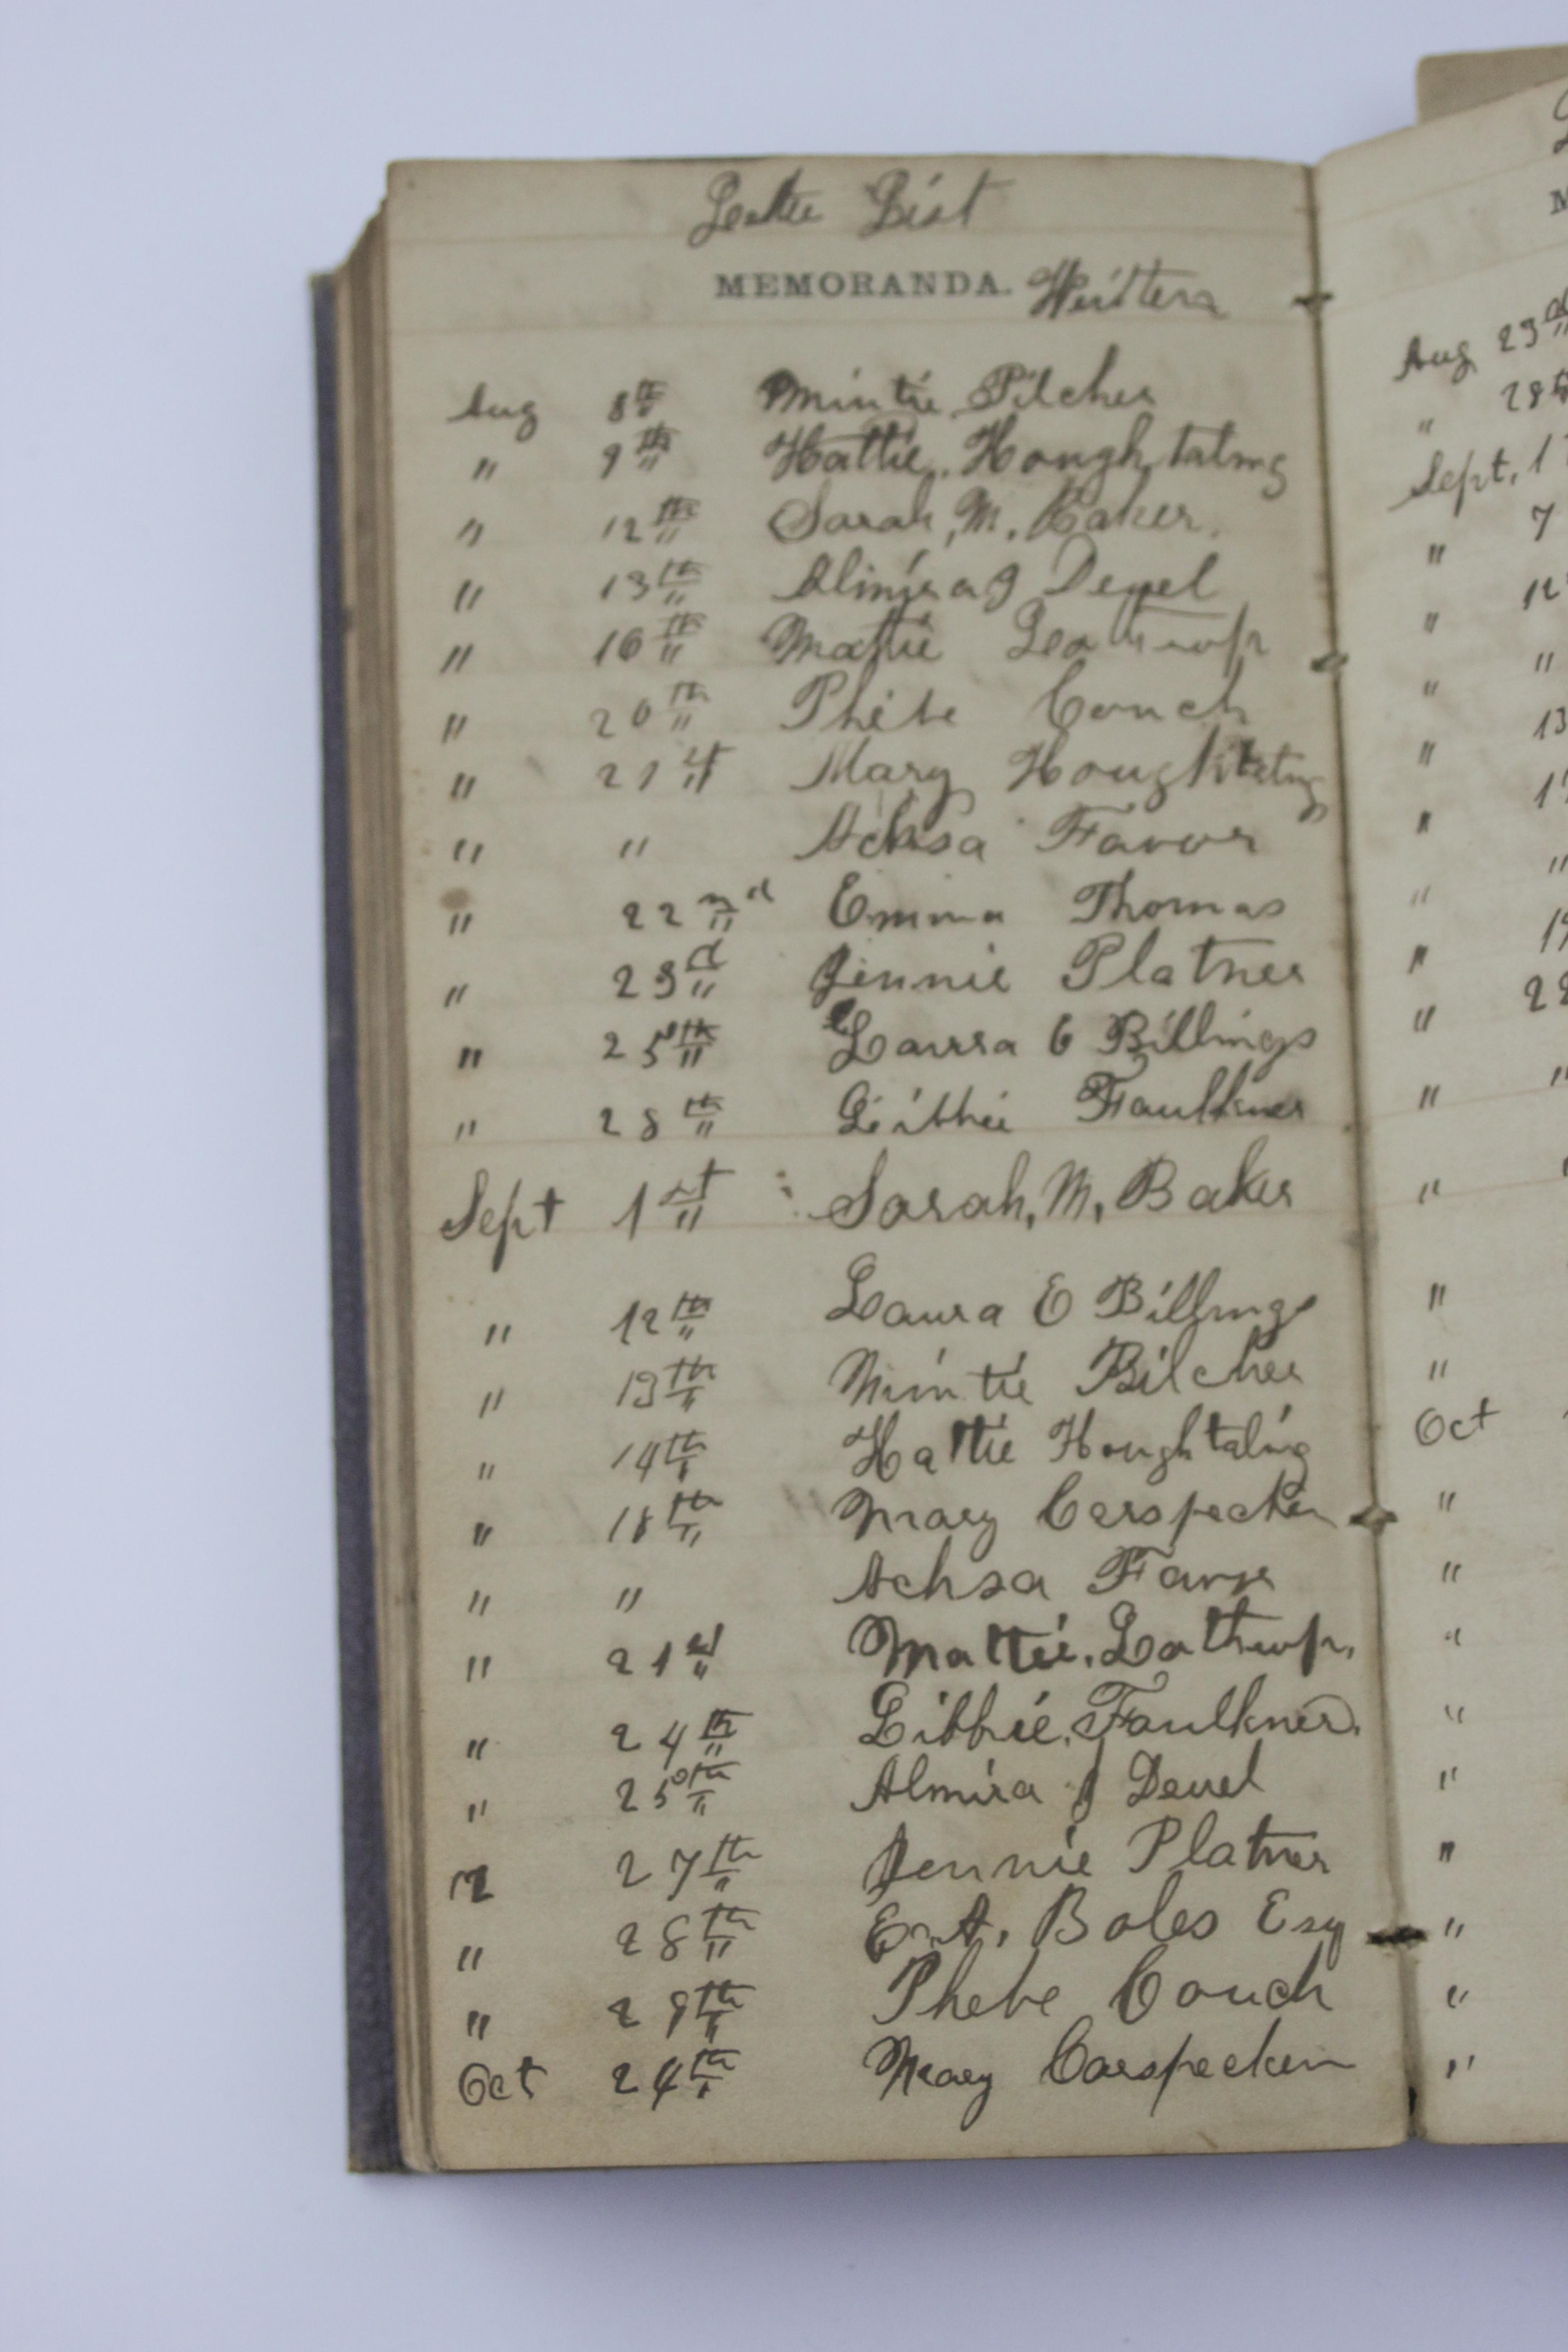 Letter List
MEMORANDA. Written
Aug 8th Mintie Pilcher
" 9th Hattie. Houghtaling
" 12th Sarah, M. Baker.
" 13th Almira J Deuel
" 16th Mattie Lathrop
" 20th Phebe Couch
" 21st Mary Houghtaling
" " Achsa Favor
" 22nd Emma Thomas
" 23d Jennie Platner
" 25th Laura E Billings
" 28th Libbie Faulkner
Sept 1st Sarah, M, Baker
" 12th Laura E Billings
" 13th Mintie Pilcher
" 14th Hattie Houghtaling
" 18th Mary Carspecken
" " Achsa Favor
" 21st Mattie. Lathrop,
" 24th Libbie. Faulkner.
" 25th Almira J Deuel
" 27th Jennie Platner
" 28th Boles Esq
" 29th Phebe Couch
Oct 24th Mary Carspecken
Aug 23d
" 28th
Sept, 1
" 7
" 12
" "
" 13
" 1
" "
" 19
" 22
" "
"
"
"
Oct
"
"
"
"
"
"
"
"
"